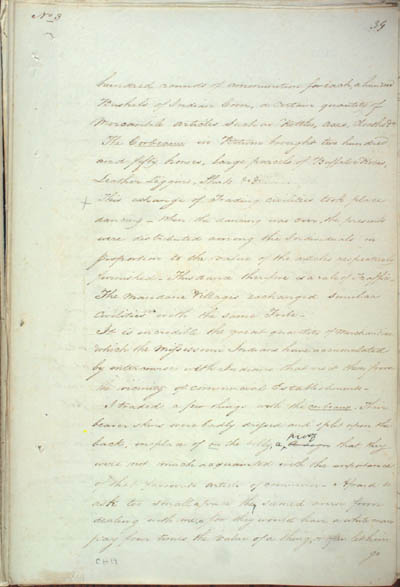 No 3
39
hundred rounds of ammunition for each, a hundred
Bushels of Indian Corn, a certain quantity of
Mercantile articles such as Kettles, axes, Cloths &c
The Corbeaux in Return brought two hundred
and fifty horses, large parcels of Buffaloe Robes,
Leather Leggins, Shirts &c &c
+ This exchange of Trading civilities took place
dancing – When the dancing was over, the presents
were distributed among the Individuals in
proportion to the value of the articles respectively
furnished – This dance therefore is a rule of Traffic.
The Mandane Villages exchanged similar
Civilities with the same Tribe –
It is incredible the great quantity of merchandize
which the Missisourie Indians have accumulated
by intercourse with Indians that visit them from
the vicinity of commercial Establishments –
I traded a few things with the corbeaux. Their
beaver skins were badly dressed and split upon the
back, in place of on the belly, a proof that they
were not much acquainted with the importance
of that favourite article of commerce. Afraid to
ask too small a price they seemed averse from
dealing with me, for they would have a white man
pay four times the value of a thing, or let him
go